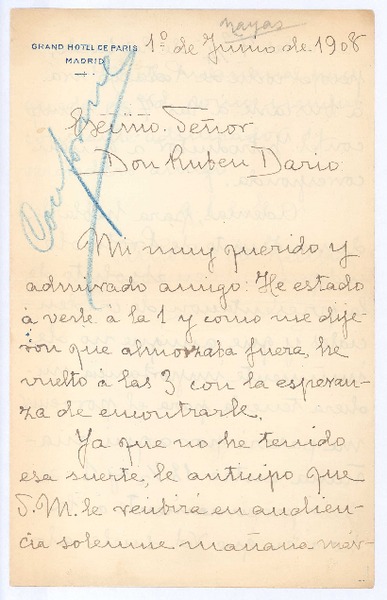 nayas
GRAND HOTEL DE PARIS
MADRID
1º de Junio de 1908
Conforme
Exc̃mo. Señor
Don Ruben Dario
Mi muy querido y
admirado amigo: He estado
á verle á la 1 y como me dije-
ron que almorzaba fuera, he
vuelto a las 3 con la esperan-
za de encontrarle.
Ya que no he tenido
esa suerte, le anticipo que
S. M. le recibirá en audien-
cia solemne mañana már-